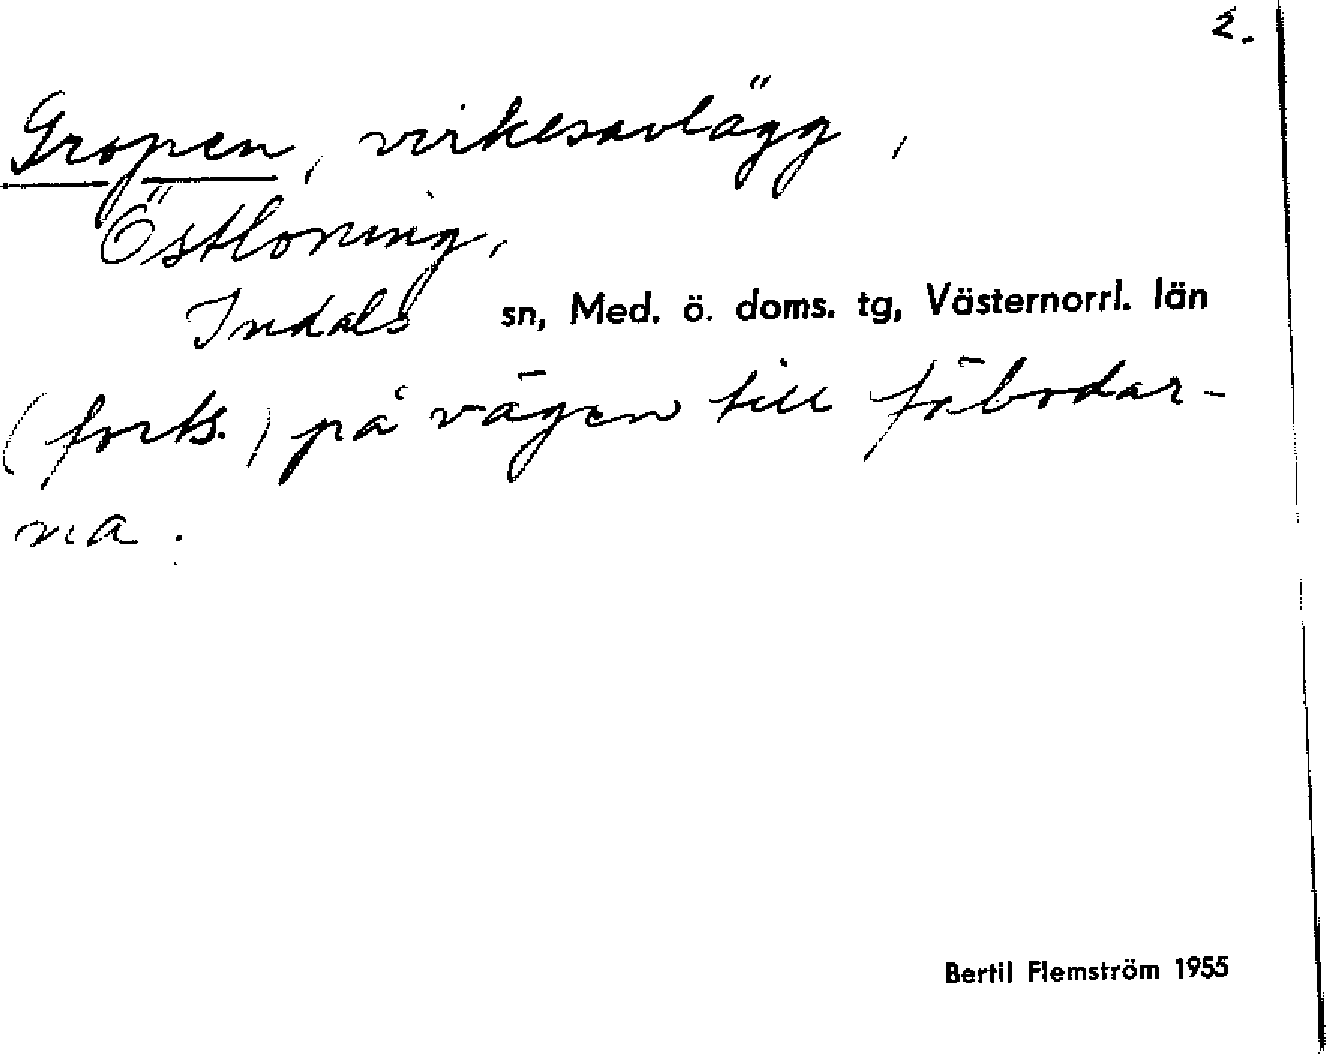 2.
Gropen, virkesavlägg,
Östloning,
Indals sn, Med. ö. doms. tg, Västernorrl. län
(forts.) på vägen till fäbodar-
na.
Bertil Flemström 1955